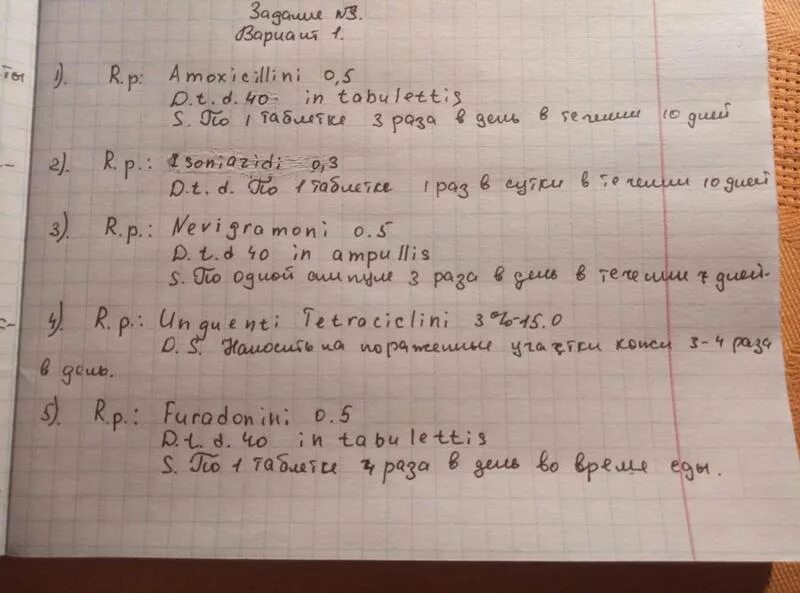 Задание №3.
Вариант 1.
ты 1). R.p: Amoxicillini 0,5
D.t.d. 40 in tabulettis
S. По 1 таблетке 3 раза в день в течении 10 дней
2). R.p.: Isoniazidi 0,3
D.t.d. По 1 таблетке 1 раз в сутки в течении 10 дней
3). R.p.: Nevigramoni 0.5
D.t.d 40 in ampullis
S. По одной ампуле 3 раза в день в течении 7 дней.
4). R.p.: Unguenti Tetraciclini 3%-15.0
D.S. Наносить на пораженные участки кожи 3-4 раза
в день.
5). R.p.: Furadonini 0.5
D.t.d. 40 in tabulettis
S. По 1 таблетке 4 раза в день во время еды.